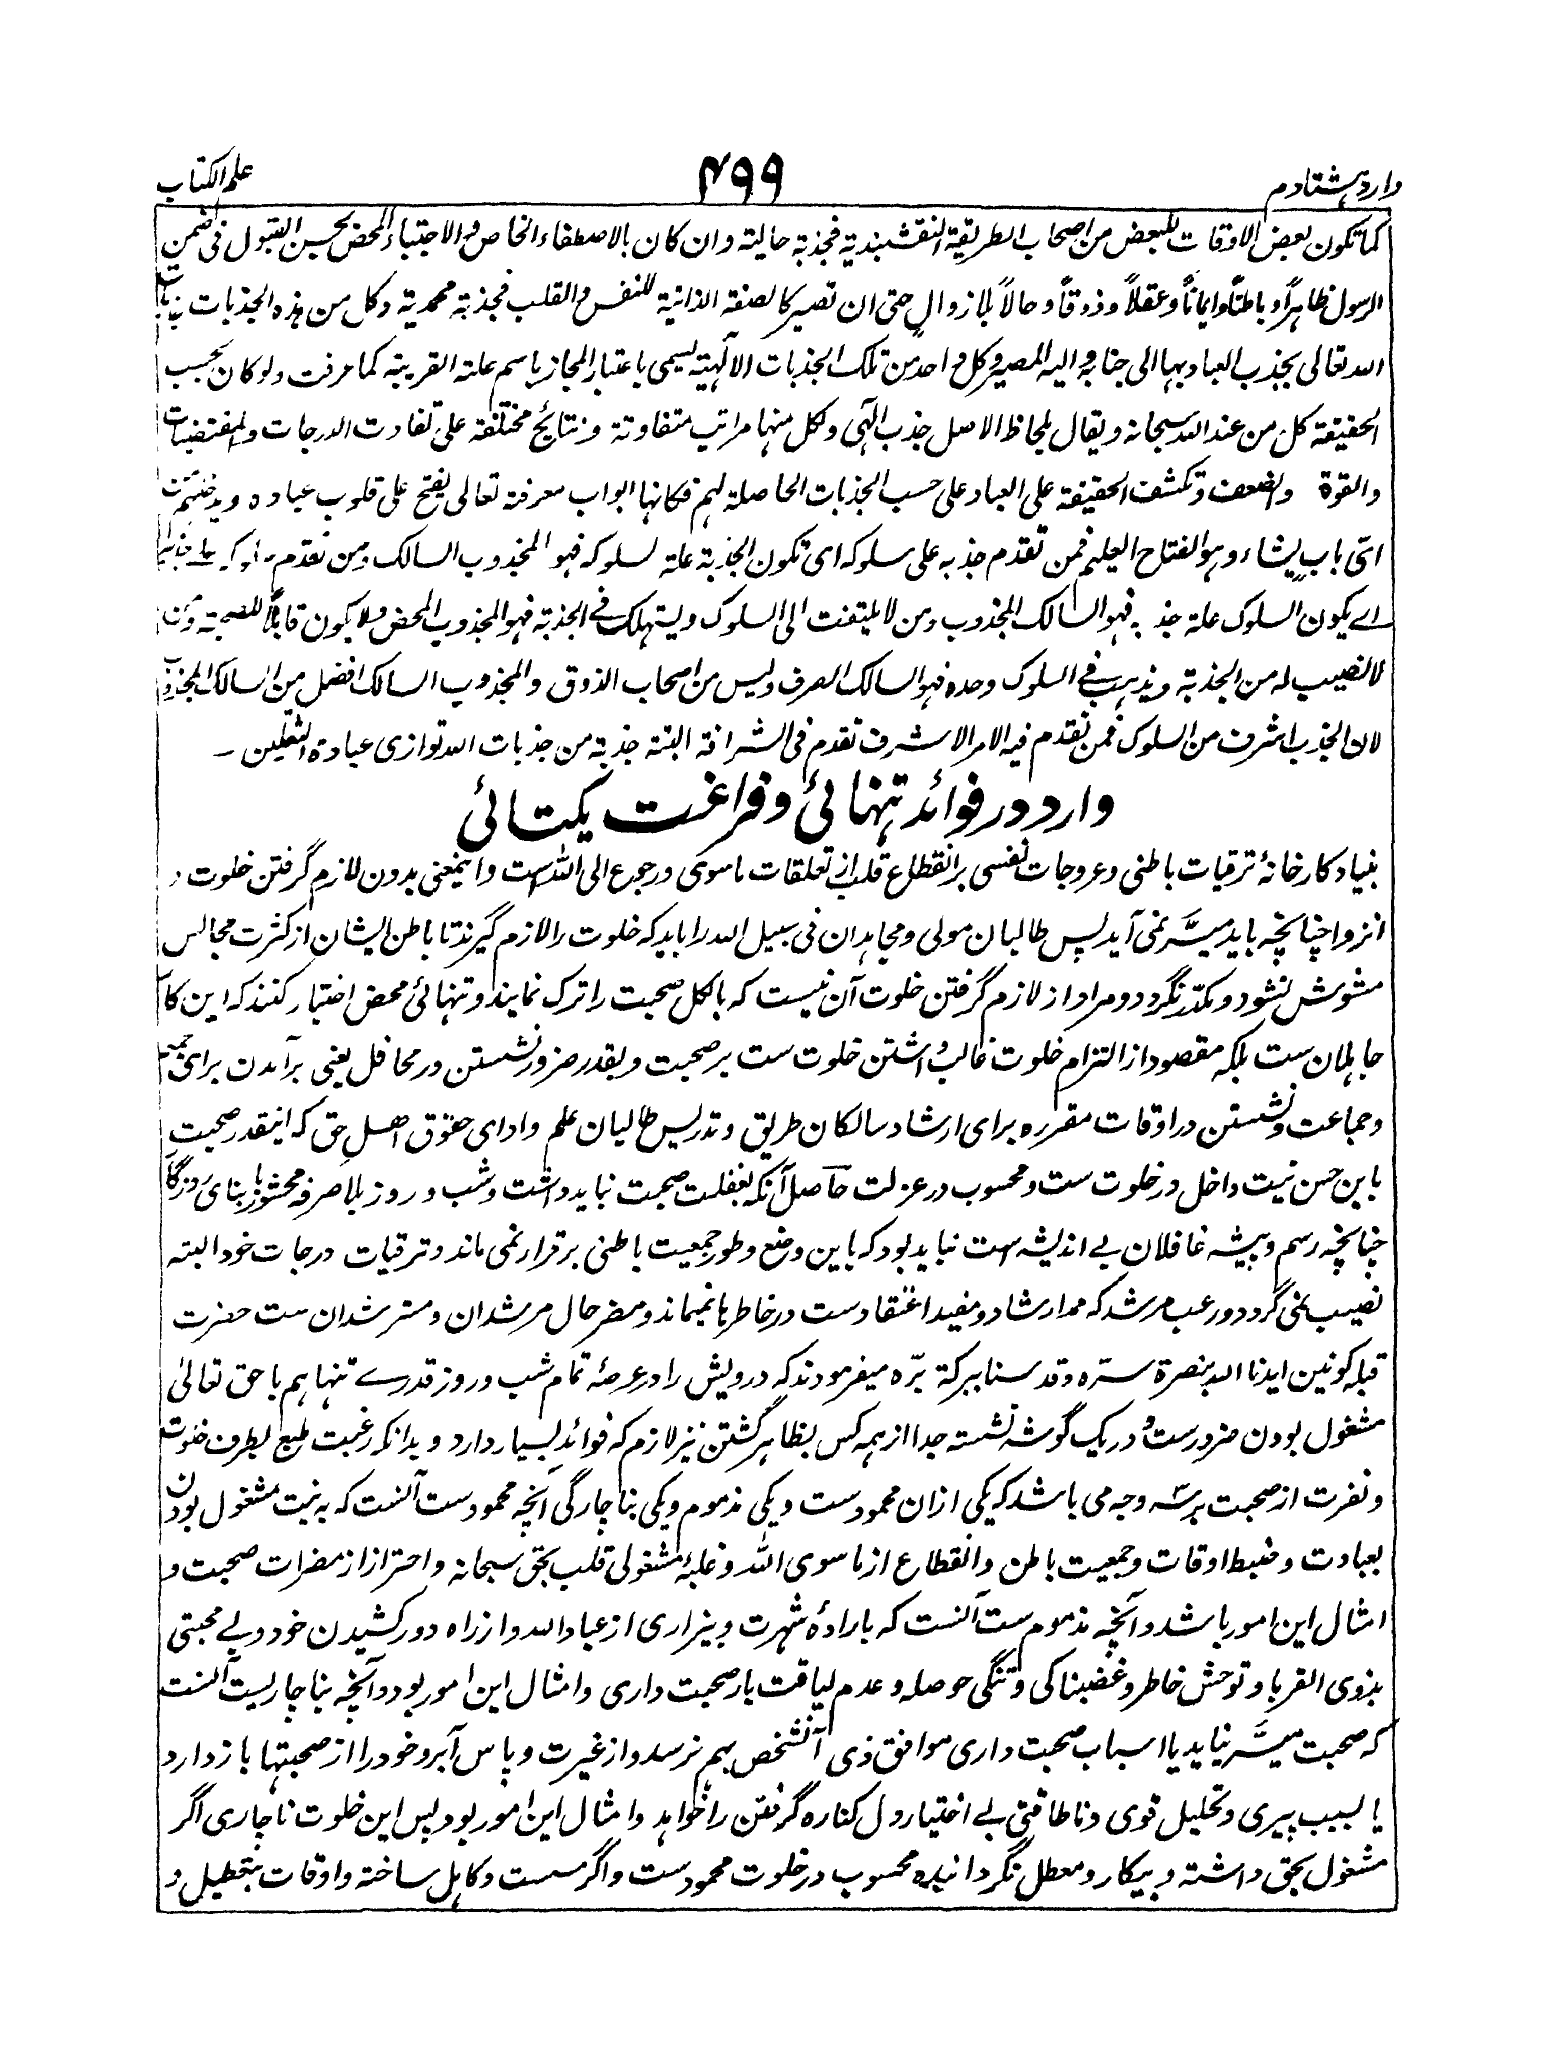 وارد هشتادم
۴۹۹
علم الکتاب
کما تکون بعض الاوقات للبعض من اصحاب الطریقة النقشبندیة فجذبة حالیة و ان کان بالاصطفاء الخاص و الاجتباء المحض بحسن القبول فی ضمن
الرسول ظاهراً و باطناً و ایماناً و عقلاً و ذوقاً و حالاً بلا زوالٍ حتی ان تصیر کالصفة الذاتیة للنفس و القلب فجذبة محمدیة و کل من هذه الجذبات
الله تعالی یجذب العباد بها الی جنابه و الیه المصیر و کل واحد من تلک الجذبات الالٰهیة یسمی باعتبار المجاز باسم علته القریبة کما عرفت و لو کان بحسب
الحقیقة کل من عند الله سبحانه و یقال بلحاظ الاصل جذب الٰهی و لکل منها مراتب متفاوتة و نتائج مختلفة علی تفاوت الدرجات و المقتضیات
و القوة و الضعف و تکشف الحقیقة علی العباد علی حسب الجذبات الحاصلة لهم فکانها ابواب معرفة تعالی یفتح علی قلوب عباده و یدخلهم من
ای بابٍ یشاء و هو الفتاح العلیم فمن تقدم جذبه علی سلوکه ای تکون الجذبة علة لسلوکه فهو المجذوب السالک و من تقدم سلوکه علی جذبه
اے یکون السلوک علة جذبه فهو السالک المجذوب و من لا یلتفت الی السلوک و یستهلک فے الجذبة فهو المجذوب المحض و لا یکون قابلاً للصحبة و من
لا نصیب له من الجذبة و یذهب فے السلوک وحده فهو السالک الصرف و لیس من اصحاب الذوق و المجذوب السالک افضل من السالک المجذوب
لان الجذب اشرف من السلوک فمن تقدم فیه الامر الاشرف تقدم فی الشرافة البتة جذبة من جذبات الله توازی عبادة الثقلین ـ
وارد در فوائد تنهائی و فراغت یکتائی
بنیاد کارخانهٔ ترقیات باطنی و عروجات نفسی بر انقطاع قلب از تعلقات ماسوی و رجوع الی الله است و اینمعنی بدون لازم گرفتن خلوت و
انزوا چنانچه باید میسّر نمی آید پس طالبان مولی و مجاهدان فی سبیل الله را باید که خلوت را لازم گیرند تا باطن ایشان از کثرت مجالس
مشوش نشود و مکدّر نگردد و مراد از لازم گرفتن خلوت آن نیست که بالکل صحبت را ترک نمایند و تنهائی محض اختیار کنند که این کار
جاهلان ست بلکه مقصود از التزام خلوت غالب داشتن خلوت ست بر صحبت و بقدر ضرور نشستن در محافل یعنی برآمدن برای جمعه
و جماعت و نشستن در اوقات مقرره برای ارشاد سالکان طریق و تدریس طالبان علم و ادای حقوق اهلِ حق که اینقدر صحبت
باین حسن نیت داخل در خلوت ست و محسوب در عزلت حاصل آنکه بغفلت صحبت نباید داشت و شب و روز بلا صرفه محشور با ابنای روزگار
چنانچه رسم و پیشه غافلان بے اندیشه است نباید بود که باین وضع و طور جمعیت باطنی برقرار نمی ماند و ترقیات درجات خود البته
نصیب نمی گردد و رعب مرشد که ممد ارشاد و مفید اعتقادست در خاطرها نمیماند و مضر حال مرشدان و مسترشدان ست حضرت
قبله کونین ایدنا الله بنصرة سرّه و قدسنا ببرکة برّه میفرمودند که درویش را در عرصهٔ تمام شب و روز قدرے تنها هم با حق تعالیٰ
مشغول بودن ضرورست و در یک گوشه نشسته جدا از همه کس بظاهر گشتن نیز لازم که فوائد بسیار دارد و بدانکه رغبت طبع بطرف خلوت
و نفرت از صحبت بر سه وجه می باشد که یکی ازان محمودست و یکی مذموم و یکی بناچارگی آنچه محمودست آنست که به نیت مشغول بودن
بعبادت و ضبط اوقات و جمعیت باطن و انقطاع از ماسوی الله و غلبهٔ مشغولی قلب بحق سبحانه و احتراز از مضرات صحبت و
امثال این امور باشد و آنچه مذموم ست آنست که بارادهٔ شهرت و بیزاری از عباد الله و از راه دور کشیدن خود و بے محبتی
بذوی القربا و توحش خاطر و غضبناکی و تنگی حوصله و عدم لیاقت بار صحبت داری و امثال این امور بود و آنچه بناچاریست آنست
که صحبت میسّر نیاید یا اسباب صحبت داری موافق ذی آنشخص بهم نرسد و از غیرت و پاس آبرو خود را از صحبتها بازدارد
یا بسبب پیری و تحلیل قوی و ناطاقتی بے اختیار دل کناره گرفتن را خواهد و امثال این امور بود پس این خلوت ناچاری اگر
مشغول بحق داشته و بیکار و معطل نگردانیده محسوب در خلوت محمودست و اگر سست و کاهل ساخته و اوقات بتعطیل و